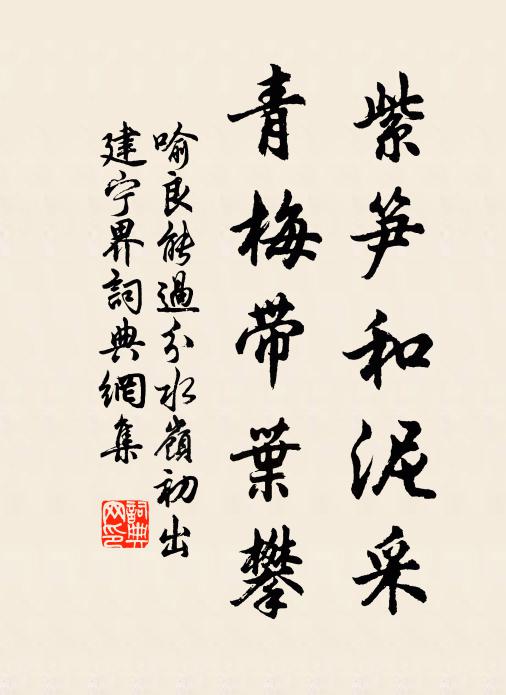 紫笋和泥采
青梅帶葉攀
喻良能過分水嶺初出
建宁界詞典網集
詞典
网印